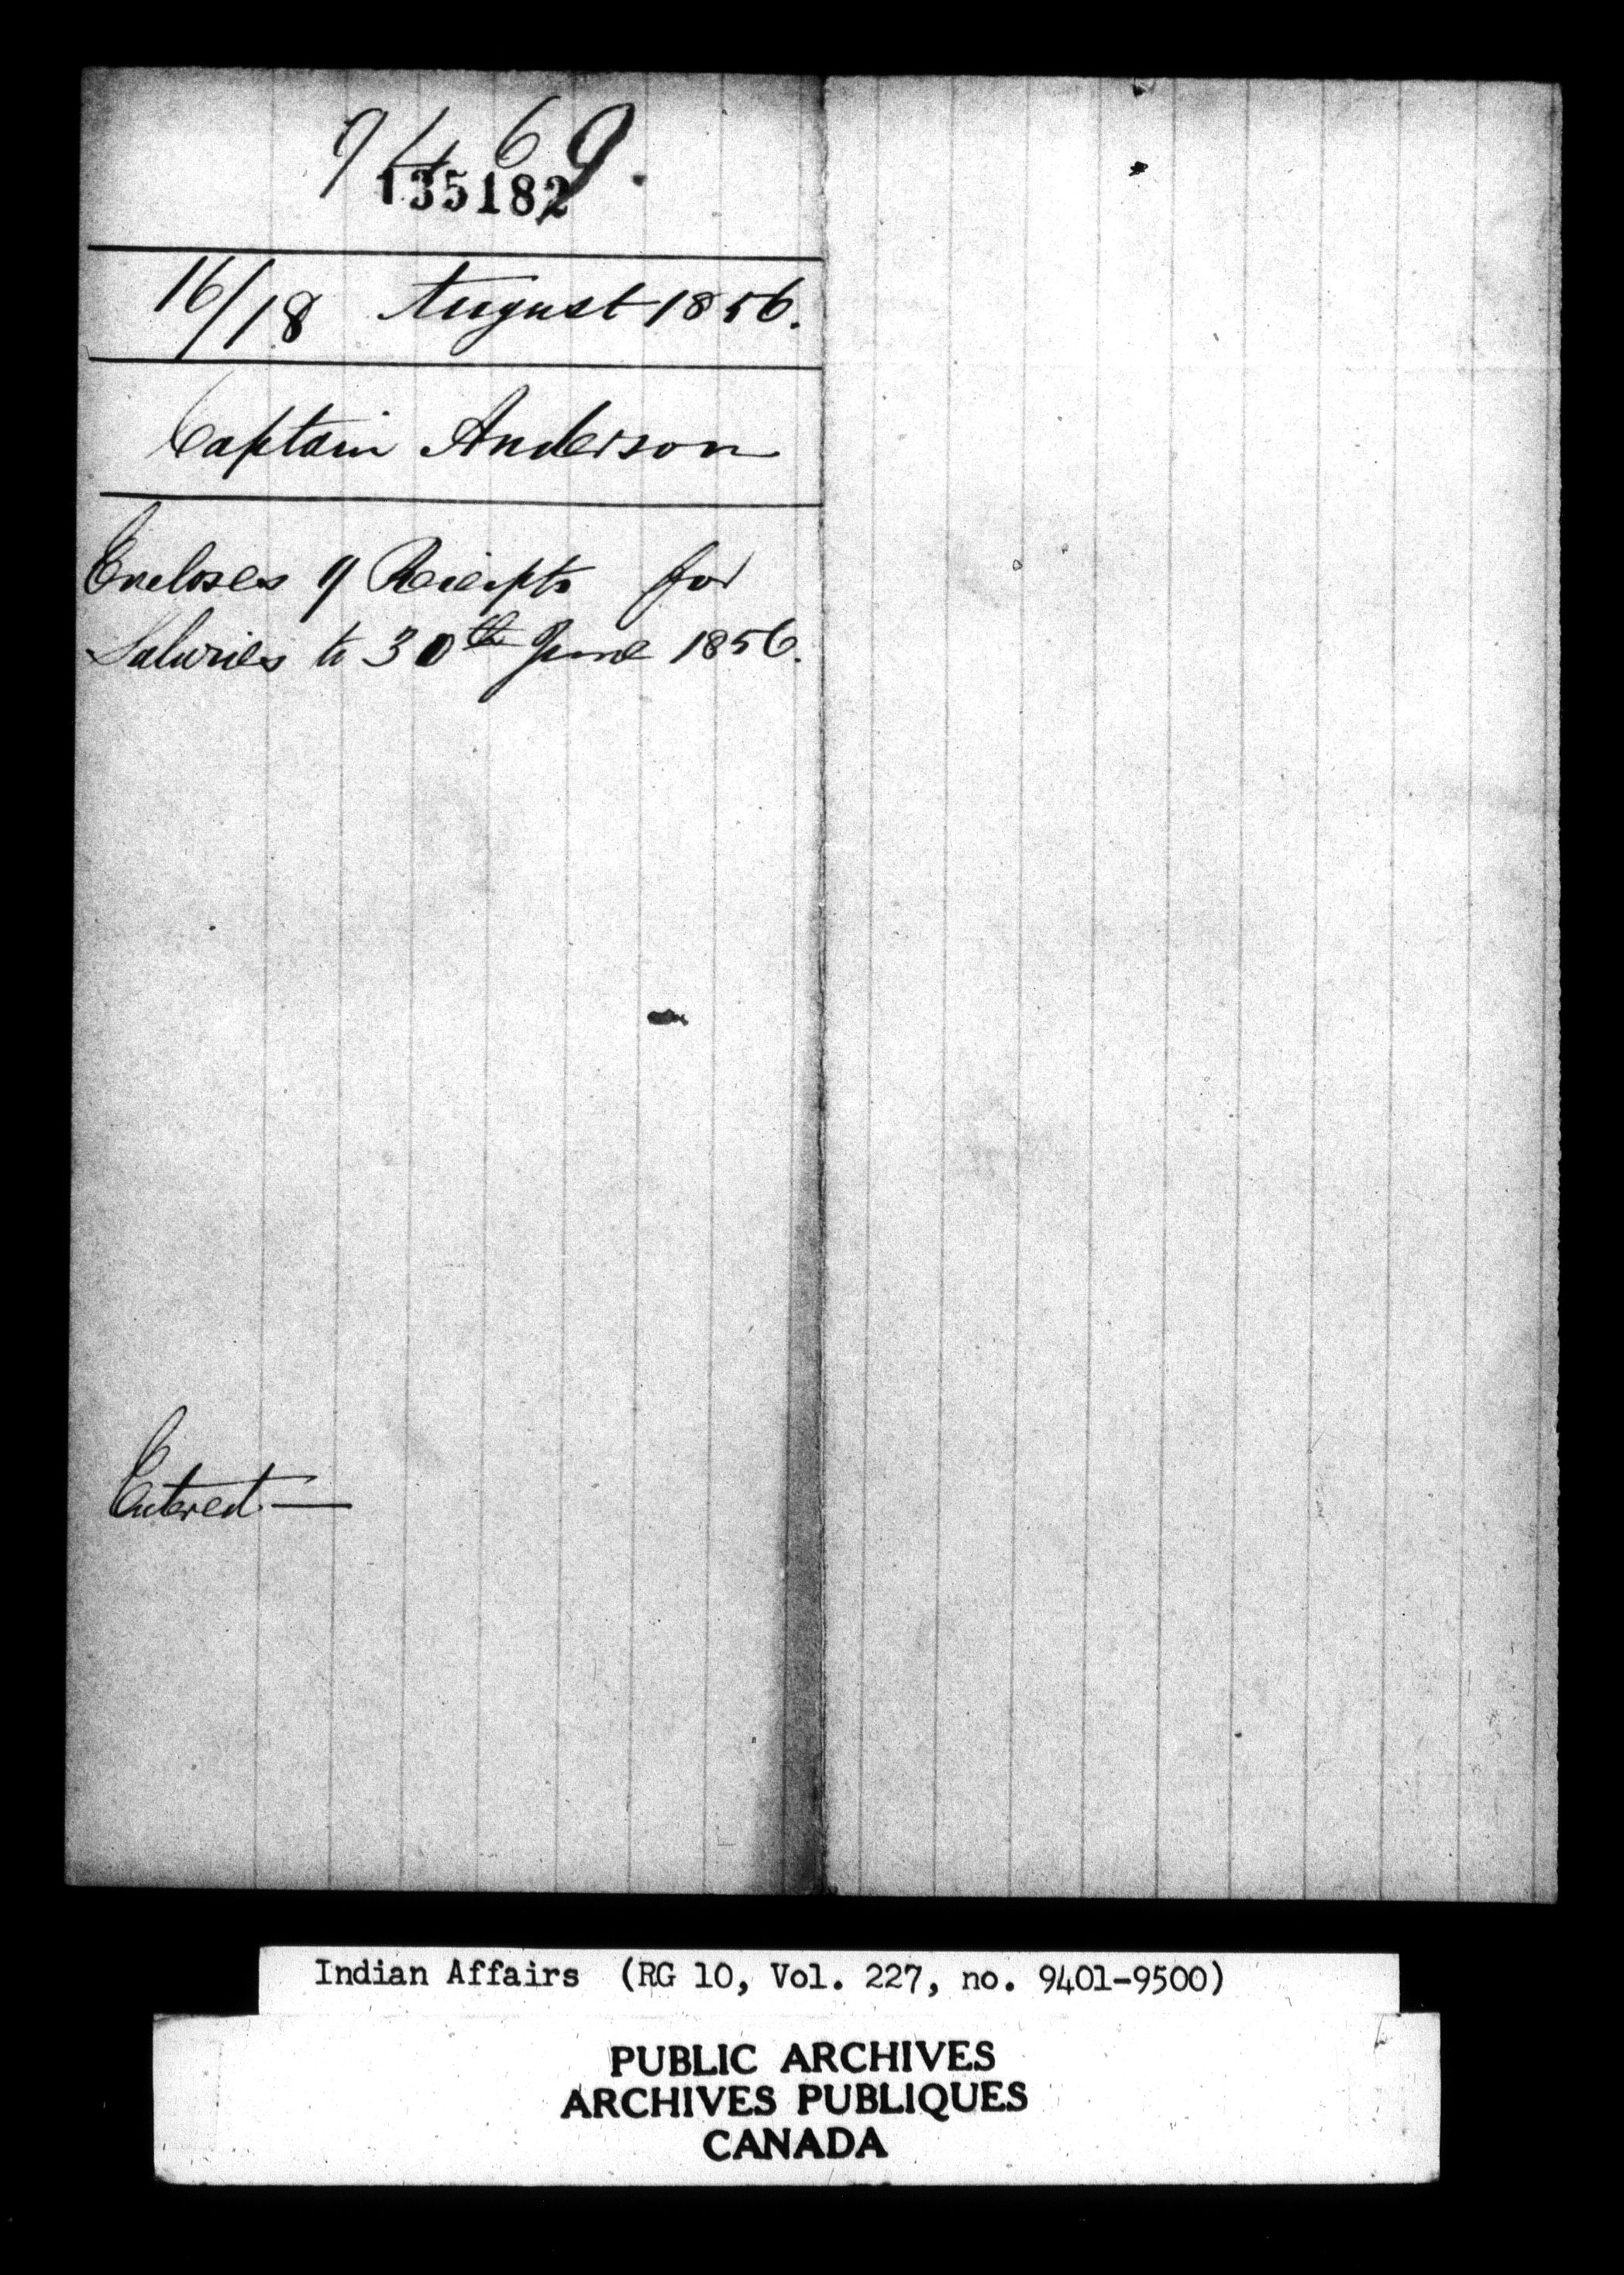 9469.
135182
16/18 August 1856.
Captain Anderson
Encloses 9 Receipts for
Salaries to 30th June 1856.
Entered.—
Indian Affairs (RG 10, Vol. 227, no. 9401-9500)
PUBLIC ARCHIVES
ARCHIVES PUBLIQUES
CANADA